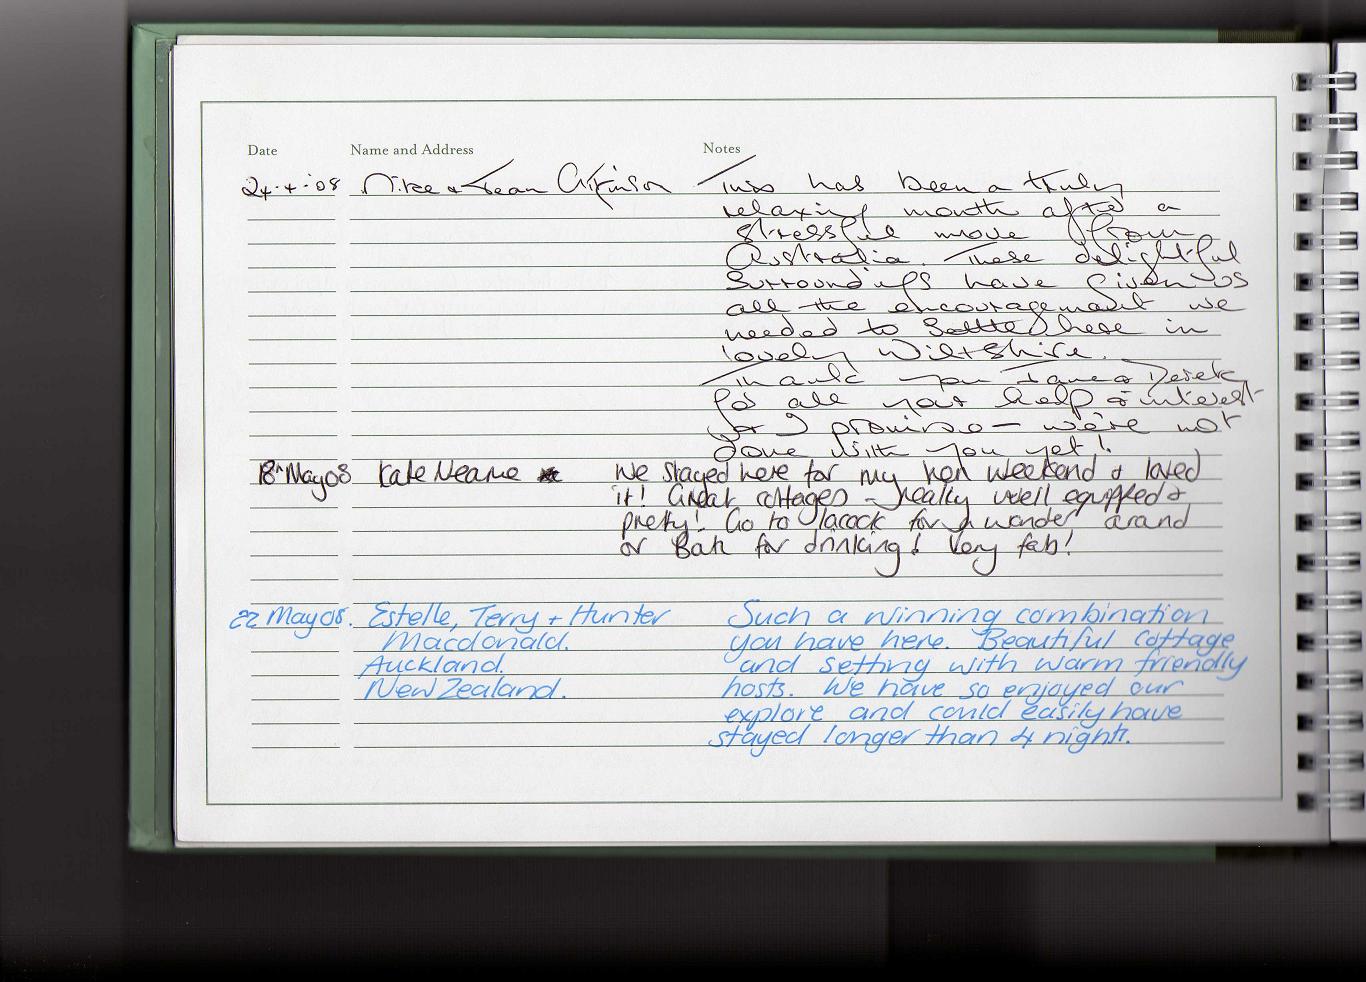 Date Name and Address Notes
24.4.'08 Mike & Jean Atkinson This has been a truly
relaxing month after a
stressful move from
Australia. These delightful
surroundings have given us
all the encouragement we
needed to settle here in
lovely Wiltshire.
Thank you Jane & Derek
for all your help & interest
or I promise - we're not
done with you yet!
18th May 08 Kate Neame We stayed here for my hen weekend & loved
it! Great cottages - really well equipped &
pretty! Go to Lacock for a wander around
or Bath for drinking! Very fab!
22 May 08. Estelle, Terry + Hunter Such a winning combination
Macdonald. you have here. Beautiful cottage
Auckland. and setting with warm friendly
New Zealand. hosts. We have so enjoyed our
explore and could easily have
stayed longer than 4 nights.